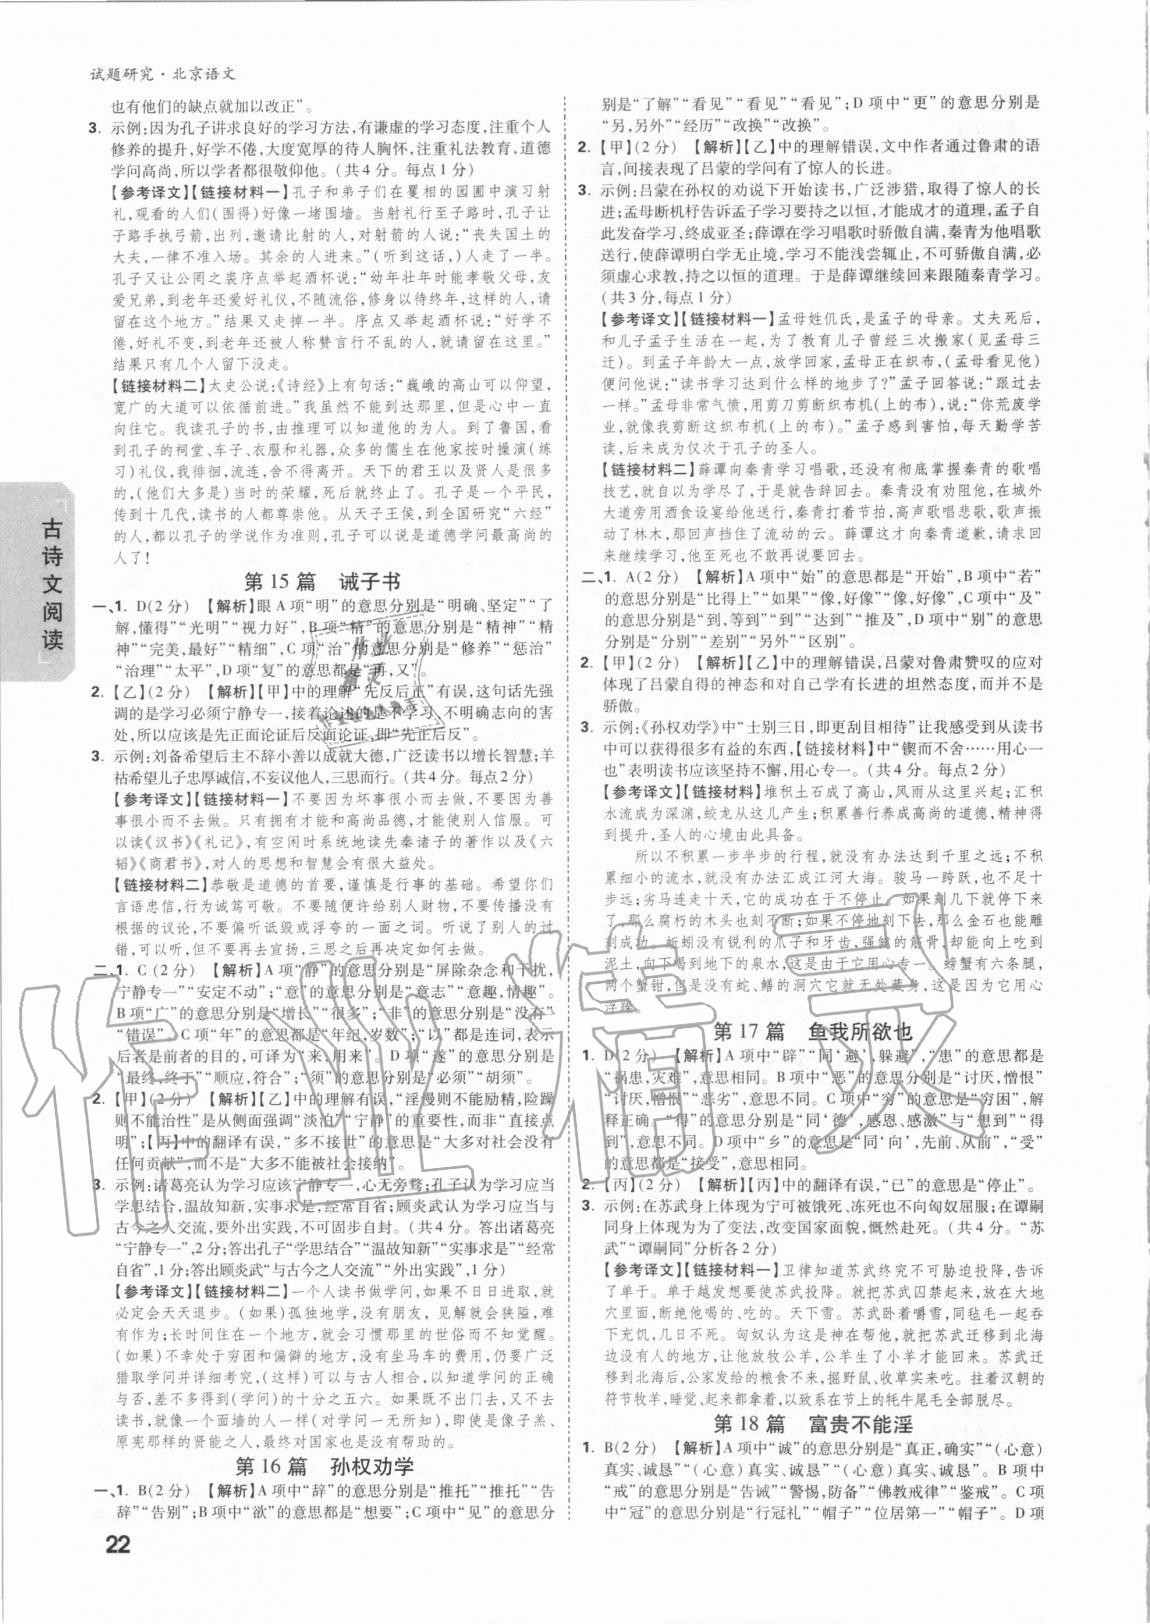 试题研究·北京语文
也有他们的缺点就加以改正”。
3. 示例:因为孔子讲求良好的学习方法,有谦虚的学习态度,注重个人
修养的提升,好学不倦,大度宽厚的待人胸怀,注重礼法教育,道德
学问高尚,所以学者都很敬仰他。(共4分。每点1分)
【参考译文】【链接材料一】孔子和弟子们在矍相的园圃中演习射
礼,观看的人们(围得)好像一堵围墙。当射礼行至子路时,孔子让
子路手执弓箭,出列,邀请比射的人,对射箭的人说:“丧失国土的
大夫,一律不准入场。其余的人进来。”(听到这话,)人走了一半。
孔子又让公罔之裘序点举起酒杯说:“幼年壮年时能孝敬父母,友
爱兄弟,到老年还爱好礼仪,不随流俗,修身以待终年,这样的人,请
留在这个地方。”结果又走掉一半。序点又举起酒杯说:“好学不
倦,好礼不变,到老年还被人称赞言行不乱的人,就请留在这里。”
结果只有几个人留下没走。
【链接材料二】太史公说:《诗经》上有句话:“巍峨的高山可以仰望,
宽广的大道可以依循前进。”我虽然不能到达那里,但是心中一直
向往它。我读孔子的书,由推理可以知道他的为人。到了鲁国,看
到孔子的祠堂、车子、衣服和礼器,众多的儒生在他家按时操演(练
习)礼仪,我徘徊,流连,舍不得离开。天下的君王以及贤人是很多
的,(他们大多是)当时的荣耀,死后就终止了。孔子是一个平民,
传到十几代,读书的人都尊崇他。从天子王侯,到全国研究“六经”
的人,都以孔子的学说作为准则,孔子可以说是道德学问最高尚的
人了!
第15篇 诫子书
一、1. D(2分) 【解析】眼A项“明”的意思分别是“明确、坚定”“了
解,懂得”“光明”“视力好”,B项“精”的意思分别是“精神”“精
神”“完美,最好”“精细”,C项“治”的意思分别是“修养”“惩治”
“治理”“太平”,D项“复”的意思都是“再,又”。
2. 【乙】(2分) 【解析】【甲】中的理解“先反后正”有误,这句话先强
调的是学习必须宁静专一,接着论述的是不学习、不明确志向的害
处,所以应该是先正面论证后反面论证,即“先正后反”。
3. 示例:刘备希望后主不辞小善以成就大德,广泛读书以增长智慧;羊
祜希望儿子忠厚诚信,不妄议他人,三思而行。(共4分。每点2分)
【参考译文】【链接材料一】不要因为坏事很小而去做,不要因为善
事很小而不去做。只有拥有才能和高尚品德,才能使别人信服。可
以读《汉书》《礼记》,有空闲时系统地读先秦诸子的著作以及《六
韬》《商君书》,对人的思想和智慧会有很大益处。
【链接材料二】恭敬是道德的首要,谨慎是行事的基础。希望你们
言语忠信,行为诚笃可敬。不要随便许给别人财物,不要传播没有
根据的议论,不要偏听诋毁或浮夸的一面之词。听说了别人的过
错,可以听,但不要再去宣扬,三思之后再决定如何去做。
二、1. C(2分) 【解析】A项“静”的意思分别是“屏除杂念和干扰,
宁静专一”“安定不动”;“意”的意思分别是“意志”“意趣,情趣”。
B项“广”的意思分别是“增长”“很多”;“非”的意思分别是“没有”
“错误”。C项“年”的意思都是“年纪,岁数”;“以”都是连词,表示
后者是前者的目的,可译为“来,用来”。D项“遂”的意思分别是
“最终,终于”“顺应,符合”;“须”的意思分别是“必须”“胡须”。
2. 【甲】(2分) 【解析】【甲】中的理解有误,“淫慢则不能励精,险躁
则不能治性”是从侧面强调“淡泊”“宁静”的重要性,而非“直接点
明”;【丙】中的翻译有误,“多不接世”的意思是“大多对社会没有
任何贡献”,而不是“大多不能被社会接纳”。
3. 示例:诸葛亮认为学习应该宁静专一,心无旁骛;孔子认为学习应当
学思结合,温故知新,实事求是,经常自省;顾炎武认为学习应当与
古今之人交流,要外出实践,不可固步自封。(共4分。答出诸葛亮
“宁静专一”,2分;答出孔子“学思结合”“温故知新”“实事求是”“经常
自省”,1分;答出顾炎武“与古今之人交流”“外出实践”,1分)
【参考译文】【链接材料二】一个人读书做学问,如果不日日进取,就
必定会天天退步。(如果)孤独地学,没有朋友,见解就会狭隘,难
有作为;长时间住在一个地方,就会习惯那里的世俗而不知觉醒。
(如果)不幸处于穷困和偏僻的地方,没有坐马车的费用,仍要广泛
猎取学问并详细考究,(这样)可以与古人相合,以知道学问的正确
与否,差不多得到(学问)的十分之五六。如果既不出门去,又不去
读书,就像一个面墙的人一样(对学问一无所知),即使是像子羔、
原宪那样的贤能之人,最终对国家也是没有帮助的。
第16篇 孙权劝学
一、1. B(2分) 【解析】A项中“辞”的意思分别是“推托”“推托”“告
辞”“告别”;B项中“欲”的意思都是“想要”;C项中“见”的意思分
别是“了解”“看见”“看见”“看见”;D项中“更”的意思分别是
“另,另外”“经历”“改换”“改换”。
2. 【甲】(2分) 【解析】【乙】中的理解错误,文中作者通过鲁肃的语
言,间接表现了吕蒙的学问有了惊人的长进。
3. 示例:吕蒙在孙权的劝说下开始读书,广泛涉猎,取得了惊人的长
进;孟母断机杼告诉孟子学习要持之以恒,才能成才的道理,孟子自
此发奋学习,终成亚圣;薛谭在学习唱歌时骄傲自满,秦青为他唱歌
送行,使薛谭明白学无止境,学习不能浅尝辄止,不可骄傲自满,
必须虚心求教,持之以恒的道理。于是薛谭继续回来跟随秦青学习。
(共3分,每点1分)
【参考译文】【链接材料一】孟母姓仉氏,是孟子的母亲。丈夫死后,
和儿子孟子生活在一起,为了教育儿子曾经三次搬家(见孟母三
迁)。到孟子年龄大一点,放学回家,孟母正在织布,(孟母看见他)
便问他说:“读书学习达到什么样的地步了?”孟子回答说:“跟过去
一样。”孟母非常气愤,用剪刀剪断织布机(上的布),说:“你荒废学
业,就像我剪断这织布机(上的布)。”孟子感到害怕,每天勤学苦
读,后来成为仅次于孔子的圣人。
【链接材料二】薛谭向秦青学习唱歌,还没有彻底掌握秦青的歌唱
技艺,就自以为学尽了,于是就告辞回去。秦青没有劝阻他,在城外
大道旁用酒食设宴给他饯行,秦青打着节拍,高声歌唱悲歌,歌声振
动了林木,那声响挡住了流动的云。薛谭这才向秦青道歉,请求留下
来继续学习,甚至死也不敢再说要回去。
二、1. A(2分) 【解析】A项中“始”的意思都是“开始”,B项中“若”
的意思分别是“比得上”“如果”“像,好像”“像,好像”,C项中“及”的
意思分别是“到,等到”“到”“达到”“推及”,D项中“别”的意
思分别是“分别”“差别”“另外”“区别”。
2. 【甲】(2分) 【解析】【乙】中的理解错误,吕蒙对鲁肃赞叹的应对
体现了吕蒙得意的神态和对自己学有长进的坦然态度,而不是
骄傲。
3. 示例:《孙权劝学》中“士别三日,即更刮目相待”让我感受到从读书
中可以获得很多有益的东西,【链接材料】中“锲而不舍……用心一
也”表明读书应该坚持不懈,用心专一。(共4分。每点2分)
【参考译文】【链接材料】堆积土石成了高山,风雨从这里兴起;汇积
水流成为深渊,蛟龙从这儿产生;积累善行养成高尚的道德,精神得
到提升,圣人的心境由此具备。
所以不积累一步半步的行程,就没有办法达到千里之远;不积
累细小的流水,就没有办法汇成江河大海。骏马一跨跃,也不足十
步远;劣马连走十天,它的成功在于不停止。(如果)刻几下就停下来
了,那么腐朽的木头也刻不断;如果不停地刻下去,那么金石也能雕
刻成功。蚯蚓没有锐利的爪子和牙齿,强健的筋骨,却能向上吃到
泥土,向下喝到泉水,这是由于它用心专一。螃蟹有六条腿,
两个蟹钳,但是没有蛇、鳝的洞穴它就无处藏身,这是因为它用心
浮躁。
第17篇 鱼我所欲也
1. D(2分) 【解析】A项中“辟”“同‘避’,躲避”,“患”的意思都是
“祸患,灾难”,意思相同。B项中“恶”的意思分别是“讨厌,憎恨”
“讨厌,憎恨”“恶劣”,意思不同。C项中“穷”的意思是“穷困”,解
释正确,“得”的意思分别是“同‘德’,感恩、感激”与“想”“得
到”,意思不同。D项中“乡”的意思是“同‘向’,先前、从前”,“受”
的意思都是“接受”,意思相同。
2. 【丙】(2分) 【解析】【丙】中的翻译有误,“已”的意思是“停止”。
3. 示例:在苏武身上体现为宁可被饿死、冻死也不向匈奴屈服;在谭嗣
同身上体现为为了变法,改变国家面貌,慨然赴死。(共4分。“苏
武”“谭嗣同”分析各2分)
【参考译文】【链接材料一】卫律知道苏武终究不可胁迫投降,告诉
了单于。单于越发想要让他投降,就把苏武囚禁起来,放在大地
穴里面,断绝他喝的、吃的。天下雪。苏武卧着嚼雪,同毡毛一起吞
下充饥,几日不死。匈奴以为这是神在帮他,就将苏武迁移到北海
边没有人的地方,让他放牧公羊,公羊生了小羊才能回来。苏武迁
移到北海后,公家发给的粮食不来,掘野鼠、收草实来吃。拄着汉朝的
符节牧羊,睡觉、起来都拿着,以致系在节上的牦牛尾毛全部脱尽。
第18篇 富贵不能淫
1. B(2分) 【解析】A项中“诚”的意思分别是“真正,确实”“(心意)
真实、诚恳”“(心意)真实、诚恳”“(心意)真实、诚恳”。B项中
“戒”的意思分别是“告诫”“警惕,防备”“佛教戒律”“鉴戒”。C项
中“冠”的意思分别是“行冠礼”“帽子”“位居第一”“帽子”。D项
古诗文阅读
22
作业精灵